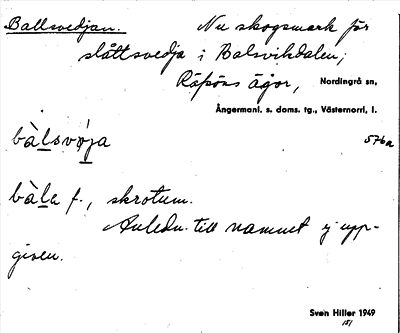 Ballsvedjan. Nu skogsmark för
slåttsvedja i Balsvikdalen;
Räfsöns ägor, Nordingrå sn,
Ångermanl. s. doms. tg., Västernorrl. l.
bàlsvøja 576a
bàla f., skrotum.
Anledn. till namnet ej upp-
given.
Sven Hiller 1949